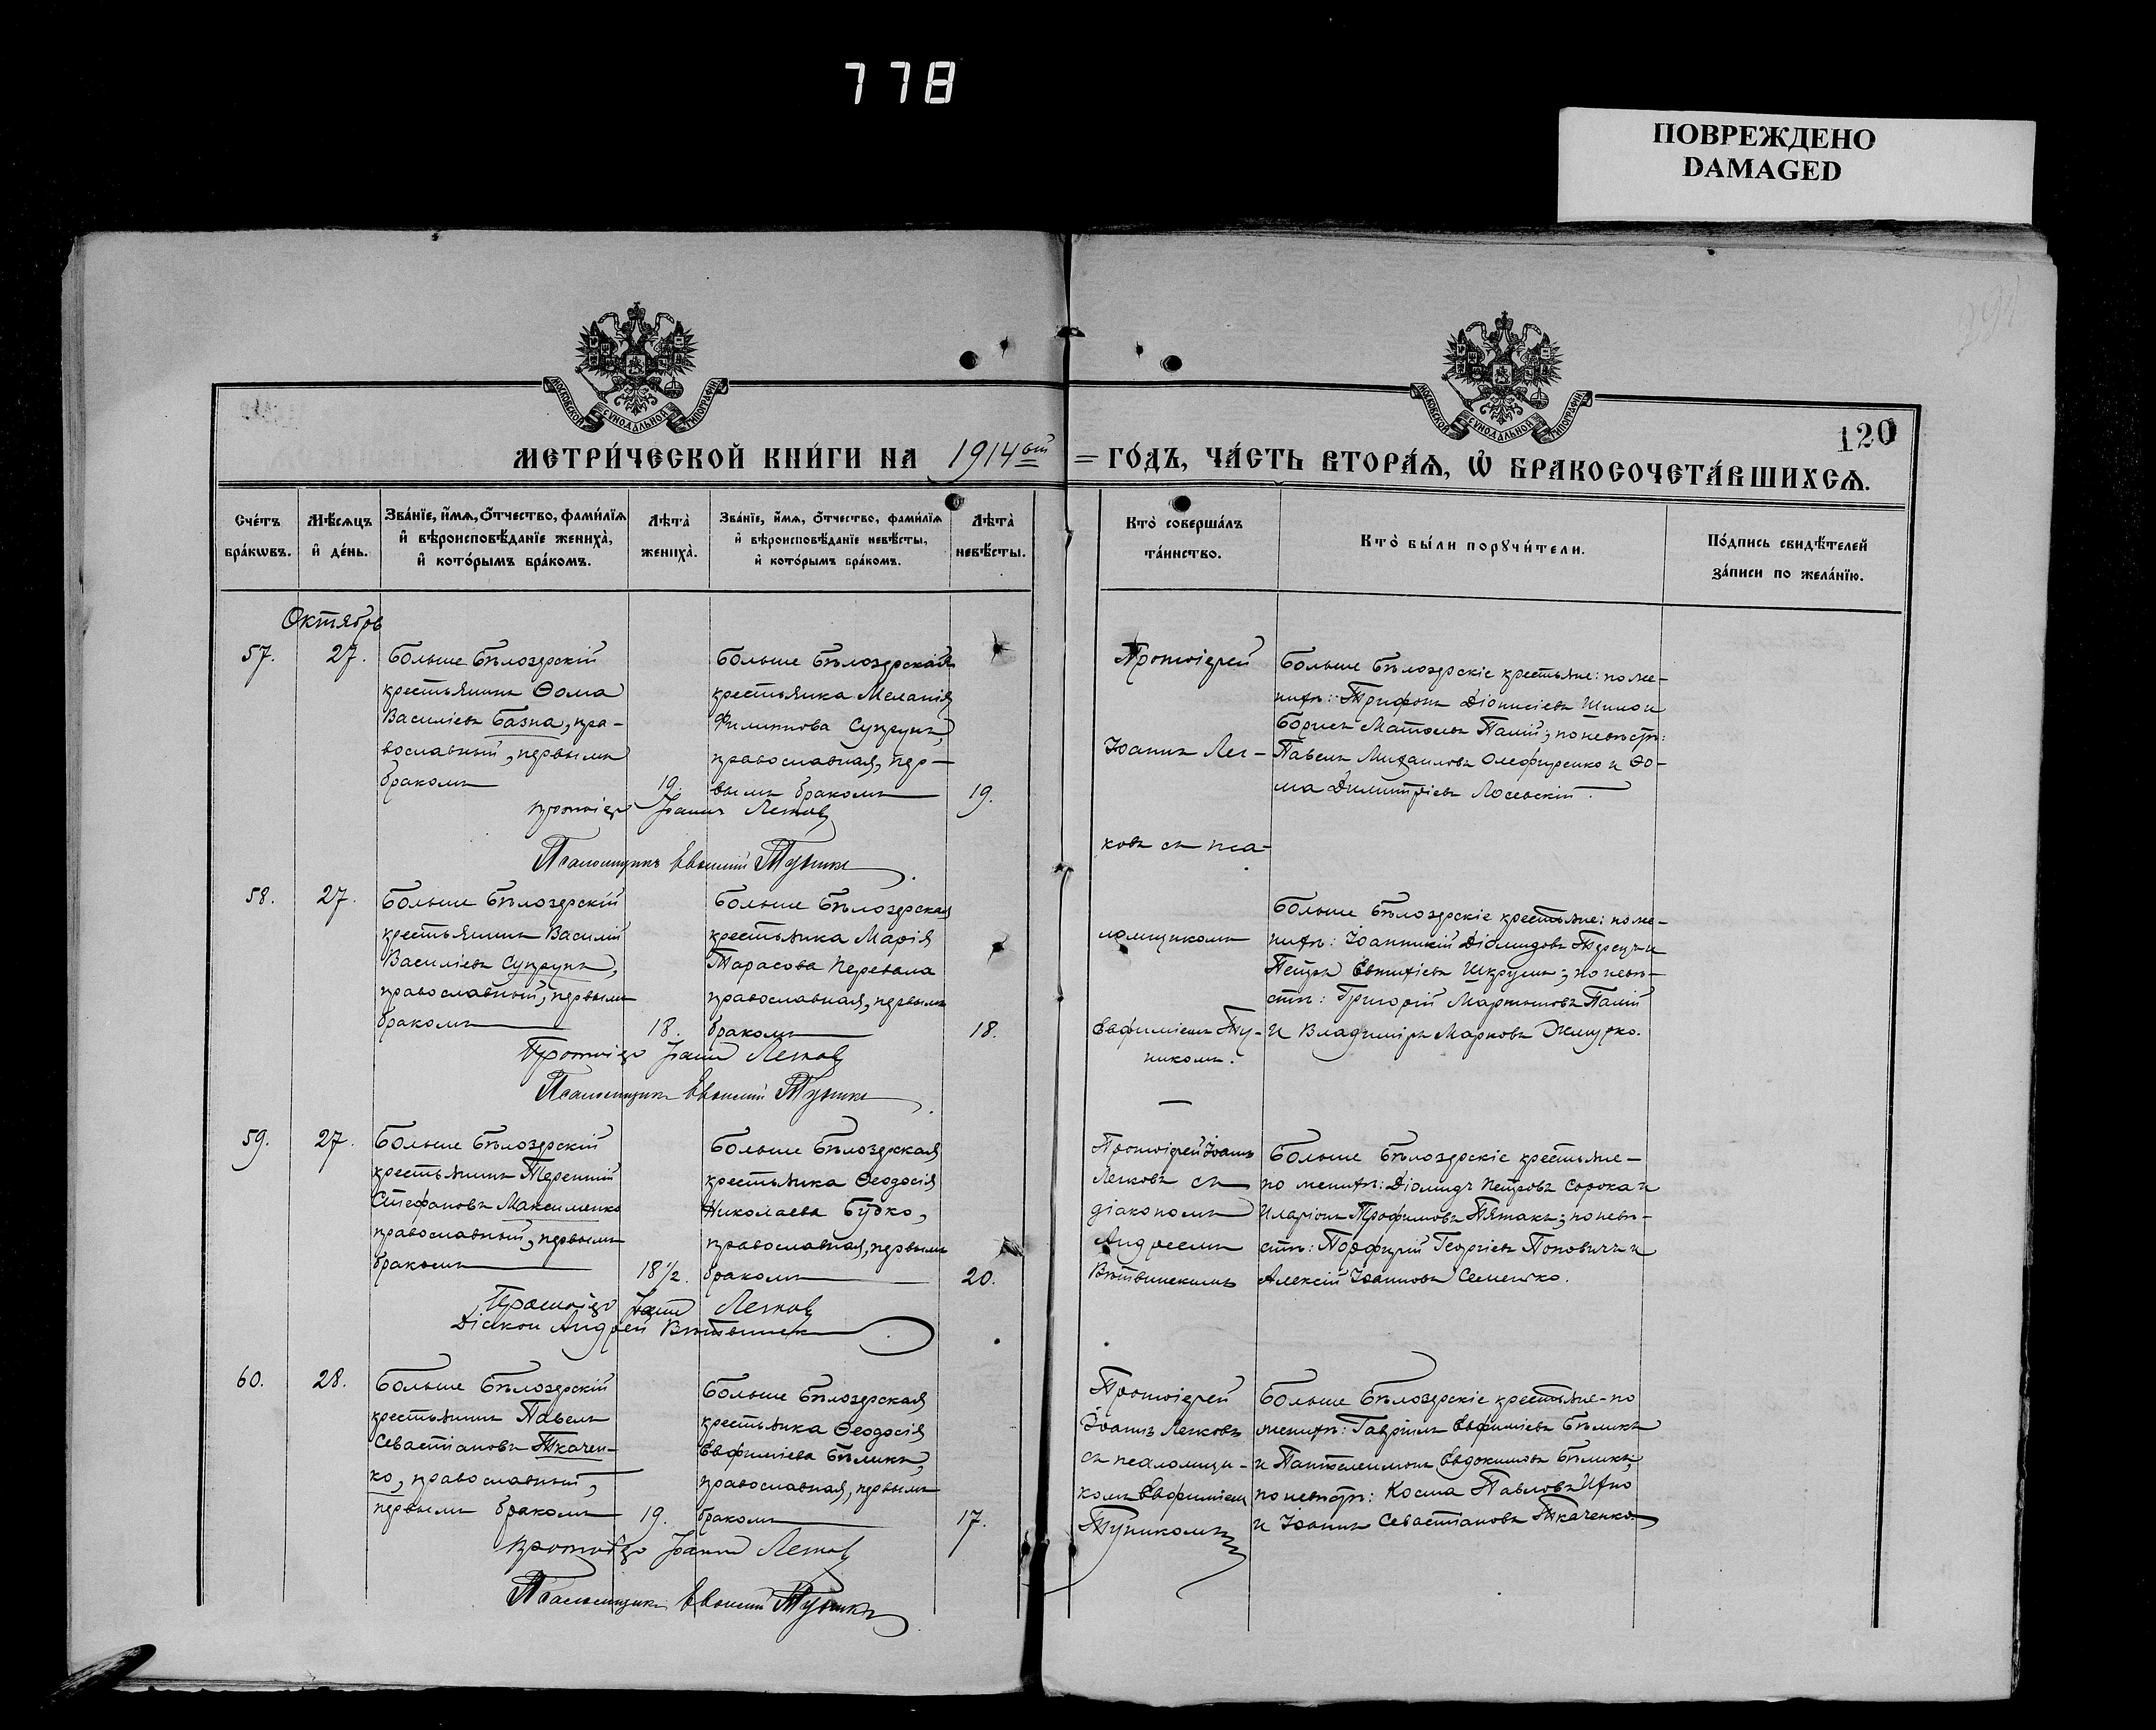 778
ПОВРЕЖДЕНО
DAMAGED
МОСКОВСКОЙ СУНОДАЛЬНОЙ ТИПОГРАФІИ
МОСКОВСКОЙ СУНОДАЛЬНОЙ ТИПОГРАФІИ
120
МЕТРИ́ЧЕСКОЙ КНИ́ГИ НА 1914ый = ГО́ДЪ, ЧА́СТЬ ВТОРА́Ѧ, Ѽ БРАКОСОЧЕТА́ВШИХСѦ.
Сче́тъ бра́кѡвъ.
Мѣ́сѧцъ и҆ де́нь.
Зва́нїе, и҆́мѧ, ѻ҆́тчество, фами́лїѧ и҆ вѣроисповѣ́данїе жениха̀, и҆ кото́рымъ бра́комъ.
Лѣ́та̀ жениха̀.
Зва́нїе, и҆́мѧ, ѻ҆́тчество, фами́лїѧ и҆ вѣроисповѣ́данїе невѣ́сты, и҆ кото́рымъ бра́комъ.
Лѣ́та̀ невѣ́сты.
Кто̀ соверша́лъ та́инство.
Кто̀ бы́ли порꙋчи́тели.
По́дпись свидѣ́телей за́писи по жела́нїю.
Октябрь
57.
27.
Больше Бѣлозерскій
крестьянинъ Ѳома
Васильевъ Базна, пра-
вославный, первымъ
бракомъ
19.
Больше Бѣлозерская
крестьянка Меланія
Филиппова Супрунъ,
православная, пер-
вымъ бракомъ
19.
Протоіерей
Іоаннъ Лег-
ковъ съ пса-
Больше Бѣлозерскіе крестьяне: по же-
нихѣ: Трифонъ Діонисіевъ Шило и
Борисъ Палій; по невѣстѣ:
Павелъ Михаиловъ Олефиренко и Ѳо-
ма Димитріевъ Лосевскій.
Протоіер Іоаннъ Легковъ
Псаломщикъ Евфимій Тупикъ
58.
27.
Больше Бѣлозерскій
крестьянинъ Василій
Васильевъ Супрунъ,
православный, первымъ
бракомъ
18.
Больше Бѣлозерская
крестьянка Марія
Тарасова Перевала
православная, первымъ
бракомъ
18.
ломщикомъ
Евфиміемъ Ту-
пикомъ.
Больше Бѣлозерскіе крестьяне: по же-
нихѣ: Іоанникій Діомидовъ и
Петръ Евтихіевъ; по невѣ-
стѣ: Григорій Мартыновъ Палій
и Владиміръ Марковъ Жмурко.
Протоіер Іоаннъ Легковъ
Псаломщикъ Евфимій Тупикъ
59.
27.
Больше Бѣлозерскій
крестьянинъ Терентій
Стефановъ Максименко
православный, первымъ
бракомъ
18 1/2.
Больше Бѣлозерская
крестьянка Ѳеодосія
Николаева Будко,
православная, первымъ
бракомъ
20.
Протоіерей Іоаннъ
Легковъ съ
діакономъ
Андреемъ
Вѣтвинскимъ
Больше Бѣлозерскіе крестьяне-
по женихѣ: Діомидъ Петровъ Сорока и
Иларіонъ Трофимовъ Пятакъ; по невѣ-
стѣ: Порфирій Георгіевъ Поповичъ и
Алексій Іоанновъ Семенко.
Протоіер Іоаннъ Легковъ
Діакон Андрей Вѣтвинск
60.
28.
Больше Бѣлозерскій
крестьянинъ Павелъ
Севастіановъ Ткачен-
ко, православный,
первымъ бракомъ
19.
Больше Бѣлозерская
крестьянка Ѳеодосія
Евфиміева Бѣликъ,
православная, первымъ
бракомъ
17.
Протоіерей
Іоаннъ Легковъ
съ псаломщи-
комъ Евфиміемъ
Тупикомъ
Больше Бѣлозерскіе крестьяне-по
женихѣ: Гавріилъ Евфиміевъ Бѣликъ
и Пантелеимонъ Евдокимовъ Бѣликъ;
по невѣстѣ: Косма Павловъ Ихно
и Іоаннъ Севастіановъ Ткаченко
Протоіер Іоаннъ Легковъ
Псаломщикъ Евфимій Тупикъ